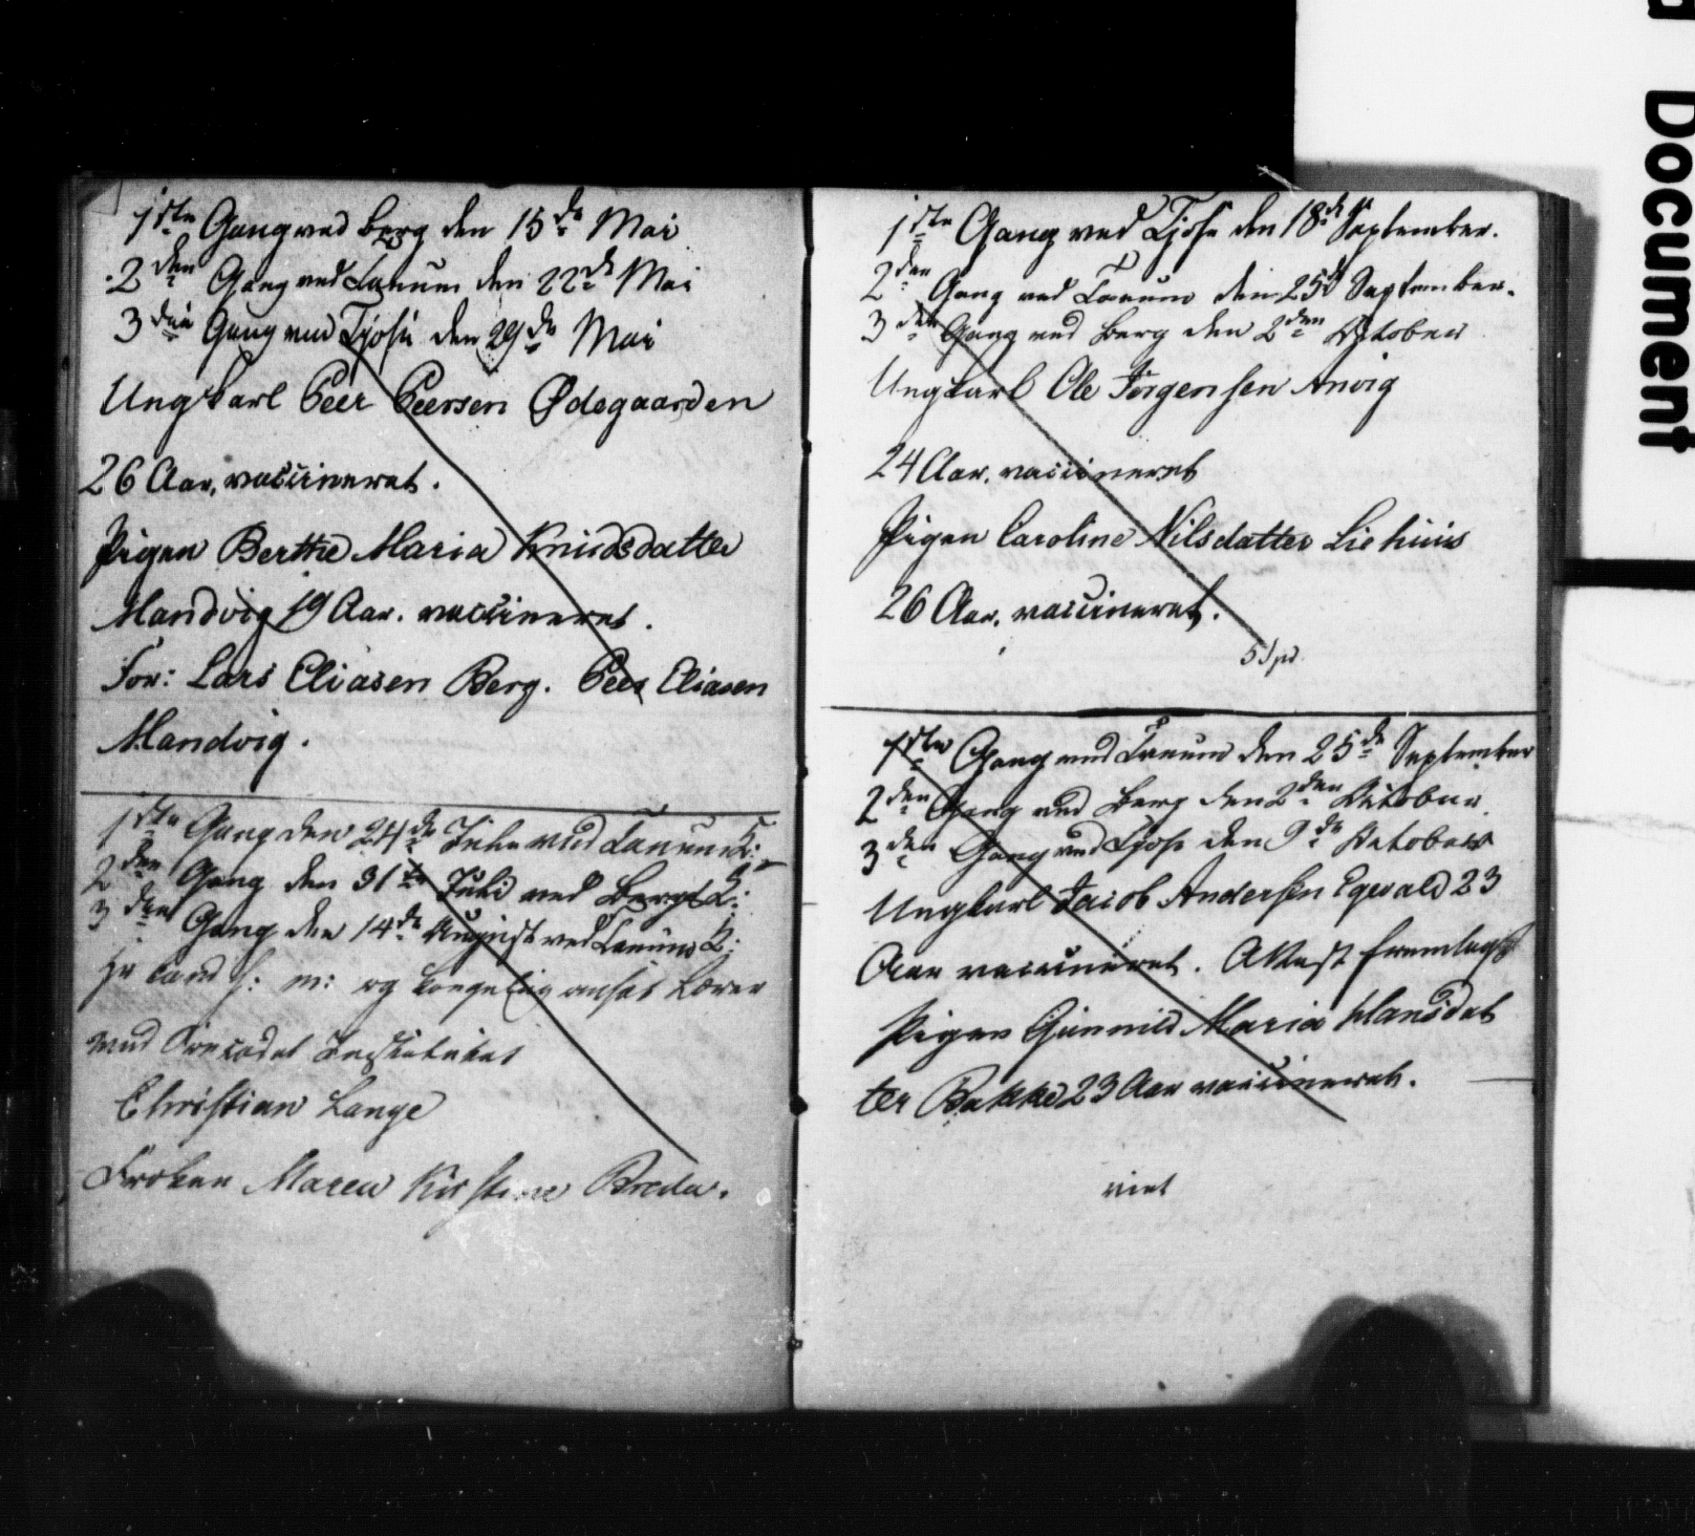 1ste Gang ved Berg den 15de Mai
2den Gang ved Tanum den 22de Mai
3die Gang ved Tjose den 29de Mai
Ungkarl Peer Peersen Ødegaarden
26 Aar, vaccineret.
Pigen Berthe Maria Knudsdatter
Mandvig 19 Aar. vaccineret.
For: Lars Eliasen Berg. Peer Eliasen
Mandvig.
1ste Gang den 24de Julii ved Tanum K:
2den Gang den 31te Juli ved Bergs K:
3den Gang den 14de August ved Tanums K:
Hr Cand og ansat Lærer
ved Søecadet Institutet
Christian Lange
Frøken Maren Kirstine Breda.
1ste Gang ved Tjose den 18de September.
2den Gang ved Tanum den 25de September.
3den Gang ved Berg den 2den October
Ungkarl Ole Jørgensen Anvig
24 Aar. vaccineret
Pigen Caroline Nilsdatter Liehuus
26 Aar. vaccineret.
5 Spd
1ste Gang ved Tanum den 25de September
2den Gang ved Berg den 2den October
3den Gang ved Tjose den 9de October
Ungkarl Jacob Andersen Egevald 23
Aar vaccineret. Attest fremlagt
Pigen Gunnild Maria Hansdat
ter Bakke 23 Aar vaccineret.
viet
Document